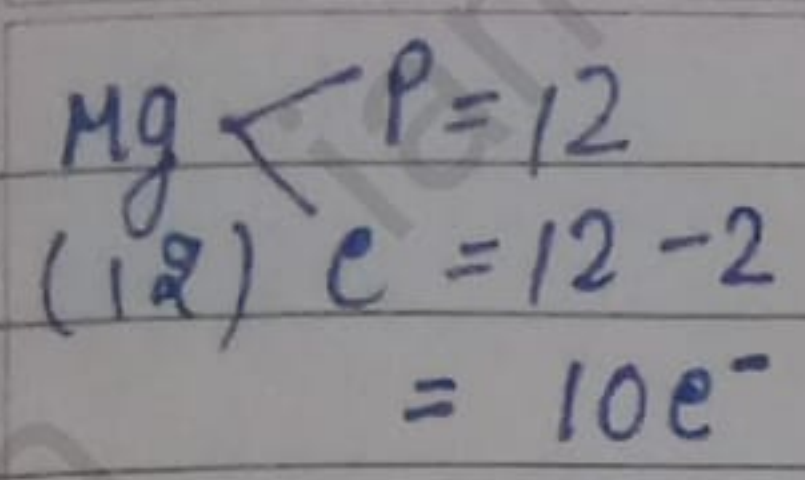 Mg < P = 12
(12) e = 12 - 2
= 10e⁻